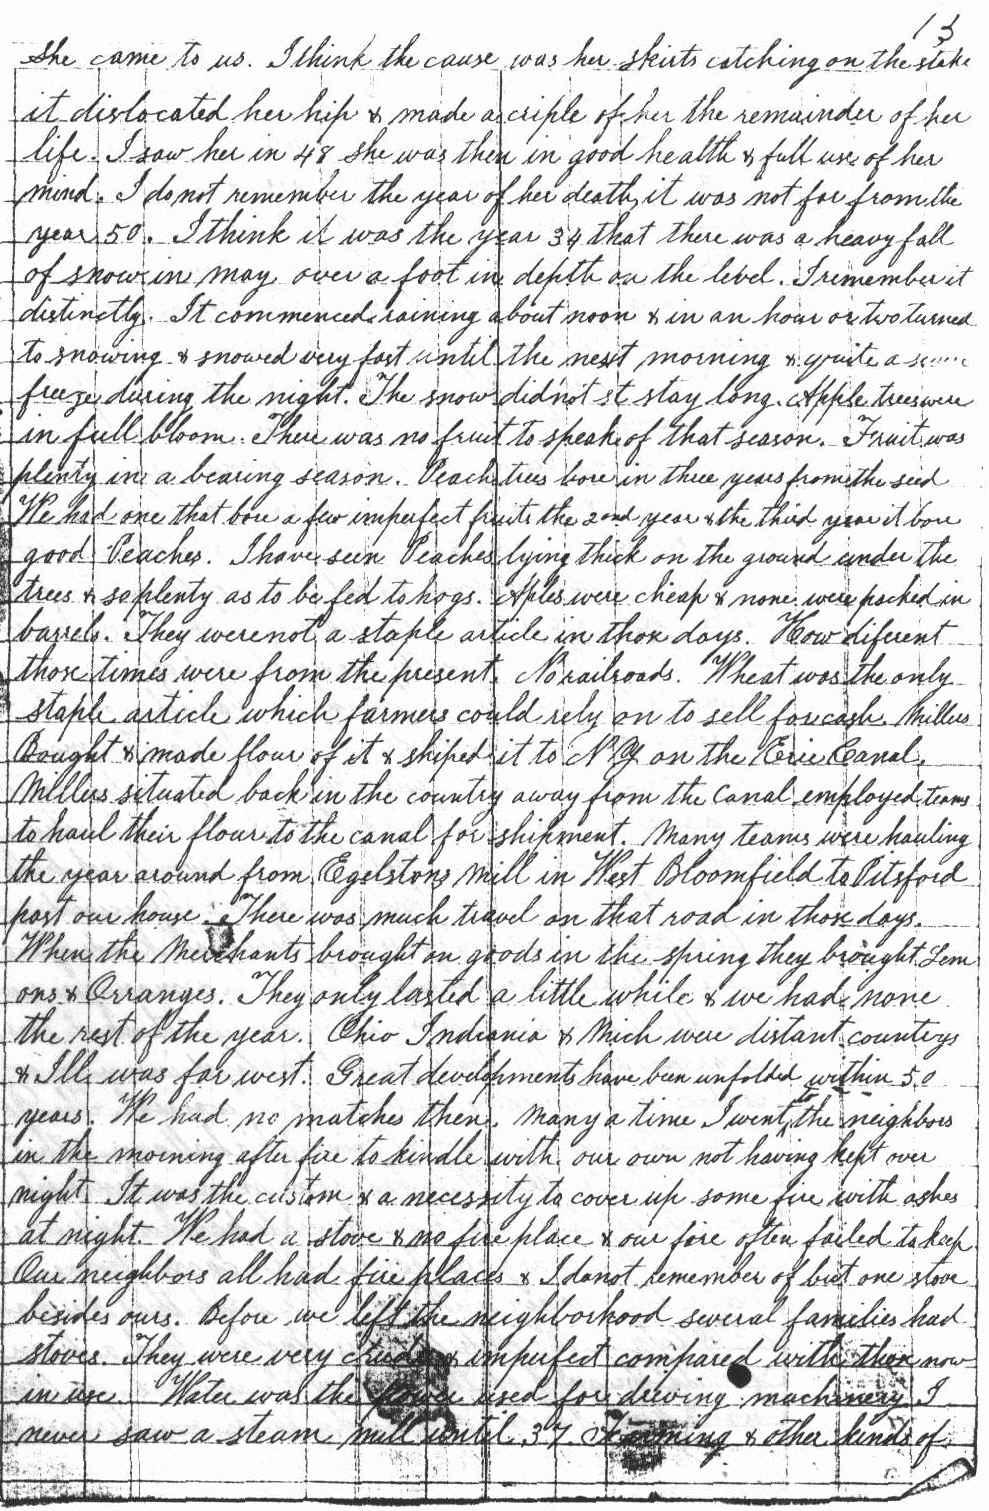 13
She came to us. I think the cause was her skirts catching on the stake
it dislocated her hip & made a criple of her the remainder of her
life. I saw her in 48 she was then in good health & full use of her
mind. I do not remember the year of her death, it was not far from the
year 50. I think it was the year 34 that there was a heavy fall
of snow in may over a foot in depth on the level. I remember it
distinctly. It commenced raining about noon & in an hour or two turned
to snowing & snowed very fast until the next morning & quite a
freeze during the night. The snow did not st stay long. Apple trees were
in full bloom. There was no fruit to speak of that season. Fruit was
plenty in a bearing season. Peach trees bore in three years from the seed
We had one that bore a few imperfect fruits the 2nd year & the third year it bore
good Peaches. I have seen Peaches lying thick on the ground under the
trees & so plenty as to be fed to hogs. Aples were cheap & none were packed in
barrels. They were not a staple article in those days. How diferent
those times were from the present. No railroads. Wheat was the only
staple article which farmers could rely on to sell for cash. Millers
Bought & made flour of it & shiped it to N.Y. on the Erie Canal.
Millers situated back in the country away from the canal employed teams
to haul their flour to the canal for shipment. Many teams were hauling
the year around from Egelstons Mill in West Bloomfield to Pitsford
past our house. There was much travel on that road in those days.
When the Merchants brought on goods in the spring they brought Lem
ons & Orranges. They only lasted a little while & we had none
the rest of the year. Ohio Indiania & Mich were distant countrys
& Ill was far west. Great developments have been unfolded within 50
years. We had no matches then. Many a time I went to the neighbors
in the morning after fire to kindle with our own not having kept over
night. It was the custom & a necessity to cover up some fire with ashes
at night. We had a stove & no fire place & our fire often failed to keep
Our neighbors all had fire places & I do not remember of but one stove
besides ours. Before we left the neighborhood several families had
stoves. They were very crude & imperfect compared with those now
in use. Water was the power used for driving machinery I
never saw a steam mill until 37. Farming & other kinds of